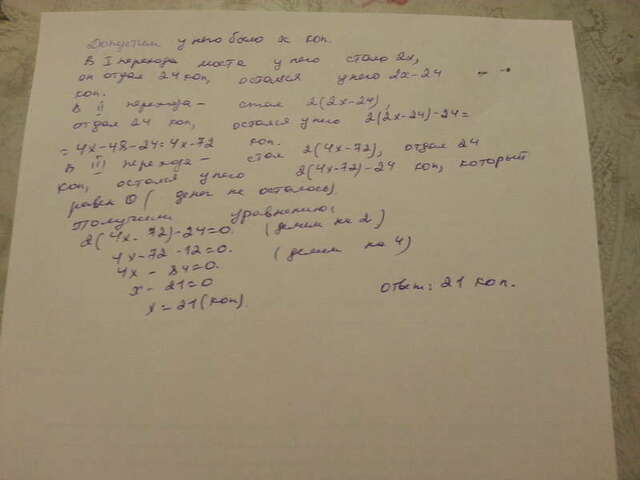 Допустим у него было x коп.
В I перехода моста у него стало 2x,
он отдал 24 коп, остался у него 2x-24
коп.
В II перехода - стал 2(2x-24),
отдал 24 коп, остался у него 2(2x-24)-24=
=4x-48-24=4x-72 коп.
В III перехода - стал 2(4x-72), отдал 24
коп, остался у него 2(4x-72)-24 коп, который
равен 0 ( денег не осталось).
Получим уравнению:
2(4x-72)-24=0. (делим на 2)
4x-72-12=0.
4x-84=0. (делим на 4)
x-21=0
x=21(коп).
Ответ: 21 коп.